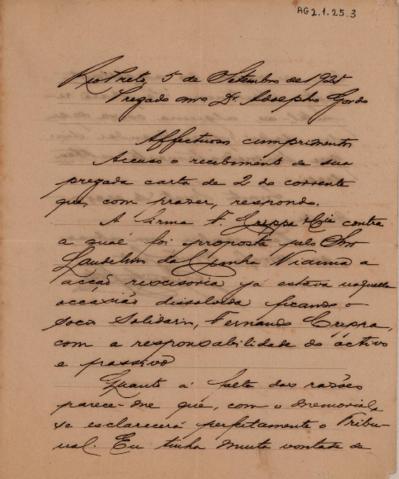 AG2.1.25.3
Rio Preto, 5 de Setembro de 192
Prezado amo Dr. Adolpho Gordo
Affectuosos cumprimentos
Accuso o recebimento de sua
prezada carta de 2 do corrente
que, com prazer, respondo.
A firma F. Crespa & Cia contra
a qual foi proposta pelo Snr
Laudelino da Cunha Vianna a
acção rescisoria já estava naquella
occasião dissolvida ficando o
socio solidario, Fernando Crespa,
com a responsabilidade do activo
e passivo
Quanto á falta das razões
parece-me que, com o memorial,
se esclarecerá perfeitamente o Tribu-
nal. Eu tinha muita vontade de